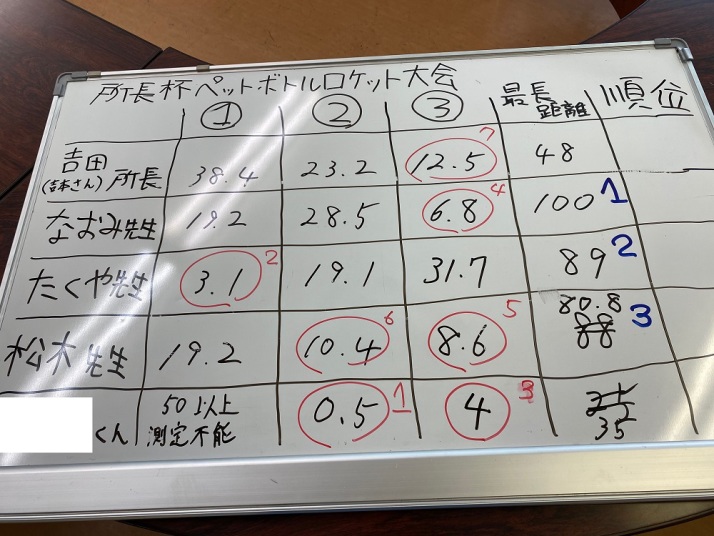 所長杯ペットボトルロケット大会
① ② ③ 最長距離 順位
吉田(吉本さん)所長 38.4 23.2 12.5 7 48
なおみ先生 19.2 28.5 6.8 4 100 1
たくや先生 3.1 2 19.1 31.7 89 2
松木先生 19.2 10.4 6 8.6 5 80.8 88 3
くん 50以上測定不能 0.5 1 4 3 35